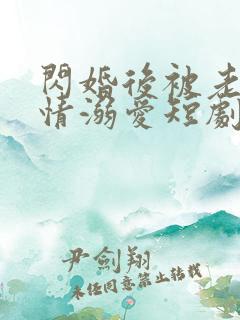 閃婚後被老
情溺愛短劇
尹劍翔
未經同意禁止轉載